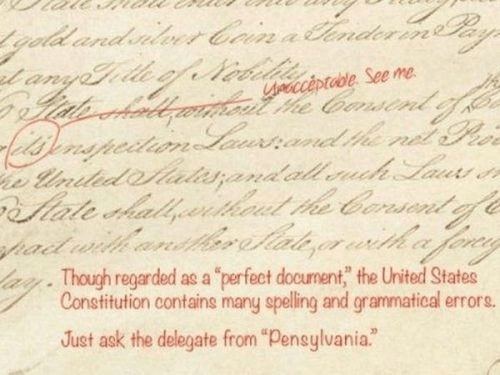 State shall enter into any
gold and silver Coin a Tender in Pay
any Title of Nobility
Unacceptable. See me.
State shall, without the Consent of
its inspection Laws: and the net Pro
he United States; and all such Laws
State shall, without the Consent of C
pact with another State, or with a foreig
lay. Though regarded as a "perfect document," the United States
Constitution contains many spelling and grammatical errors.
Just ask the delegate from "Pensylvania."